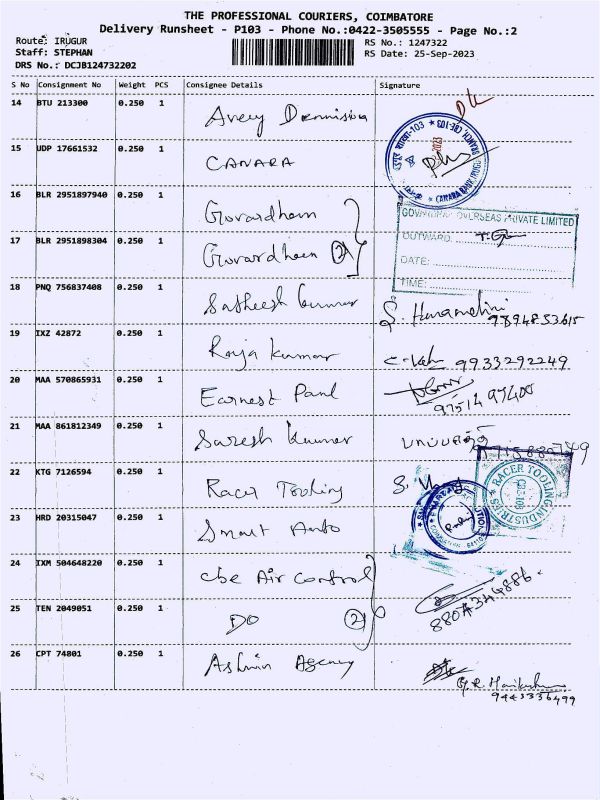 THE PROFESSIONAL COURIERS, COIMBATORE
Delivery Runsheet - P103 - Phone No.:0422-3505555 - Page No.:2
Route: IRUGUR
Staff: STEPHAN
DRS No.: DCJB124732202
RS No.: 1247322
RS Date: 25-Sep-2023
S No Consignment No Weight PCS Consignee Details Signature
14 BTU 213300 0.250 1 Avery Dennision
15 UDP 17661532 0.250 1 CANARA
16 BLR 2951897940 0.250 1 Govardhan
17 BLR 2951898304 0.250 1 Govardhan 2
OVERSEAS PRIVATE LIMITED
OUTWARD:
DATE:
TIME:
18 PNQ 756837408 0.250 1 Satheesh kumar
9894853615
19 IXZ 42872 0.250 1 Raja kumar 9933292249
20 MAA 570865931 0.250 1 Earnest Paul
9751497400
21 MAA 861812349 0.250 1 Suresh kumar
22 KTG 7126594 0.250 1 Racer Tooling
RACER TOOLING INDUSTRIES
23 HRD 20315047 0.250 1 Smart Auto
24 IXM 504648220 0.250 1 cbe Air Control
25 TEN 2049051 0.250 1 DO 2
26 CPT 74801 0.250 1 Ashwin Agency
9443336499